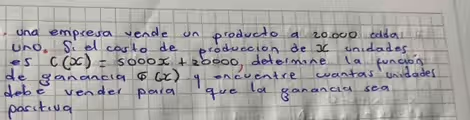 . una empresa vende un producto a 20.000 cada
uno. Si el costo de produccion de x unidades
es C(x) = 5000x + 20000, determine la función
de ganancia G(x) y encuentre cuantas unidades
debe vender para que la ganancia sea
positiva